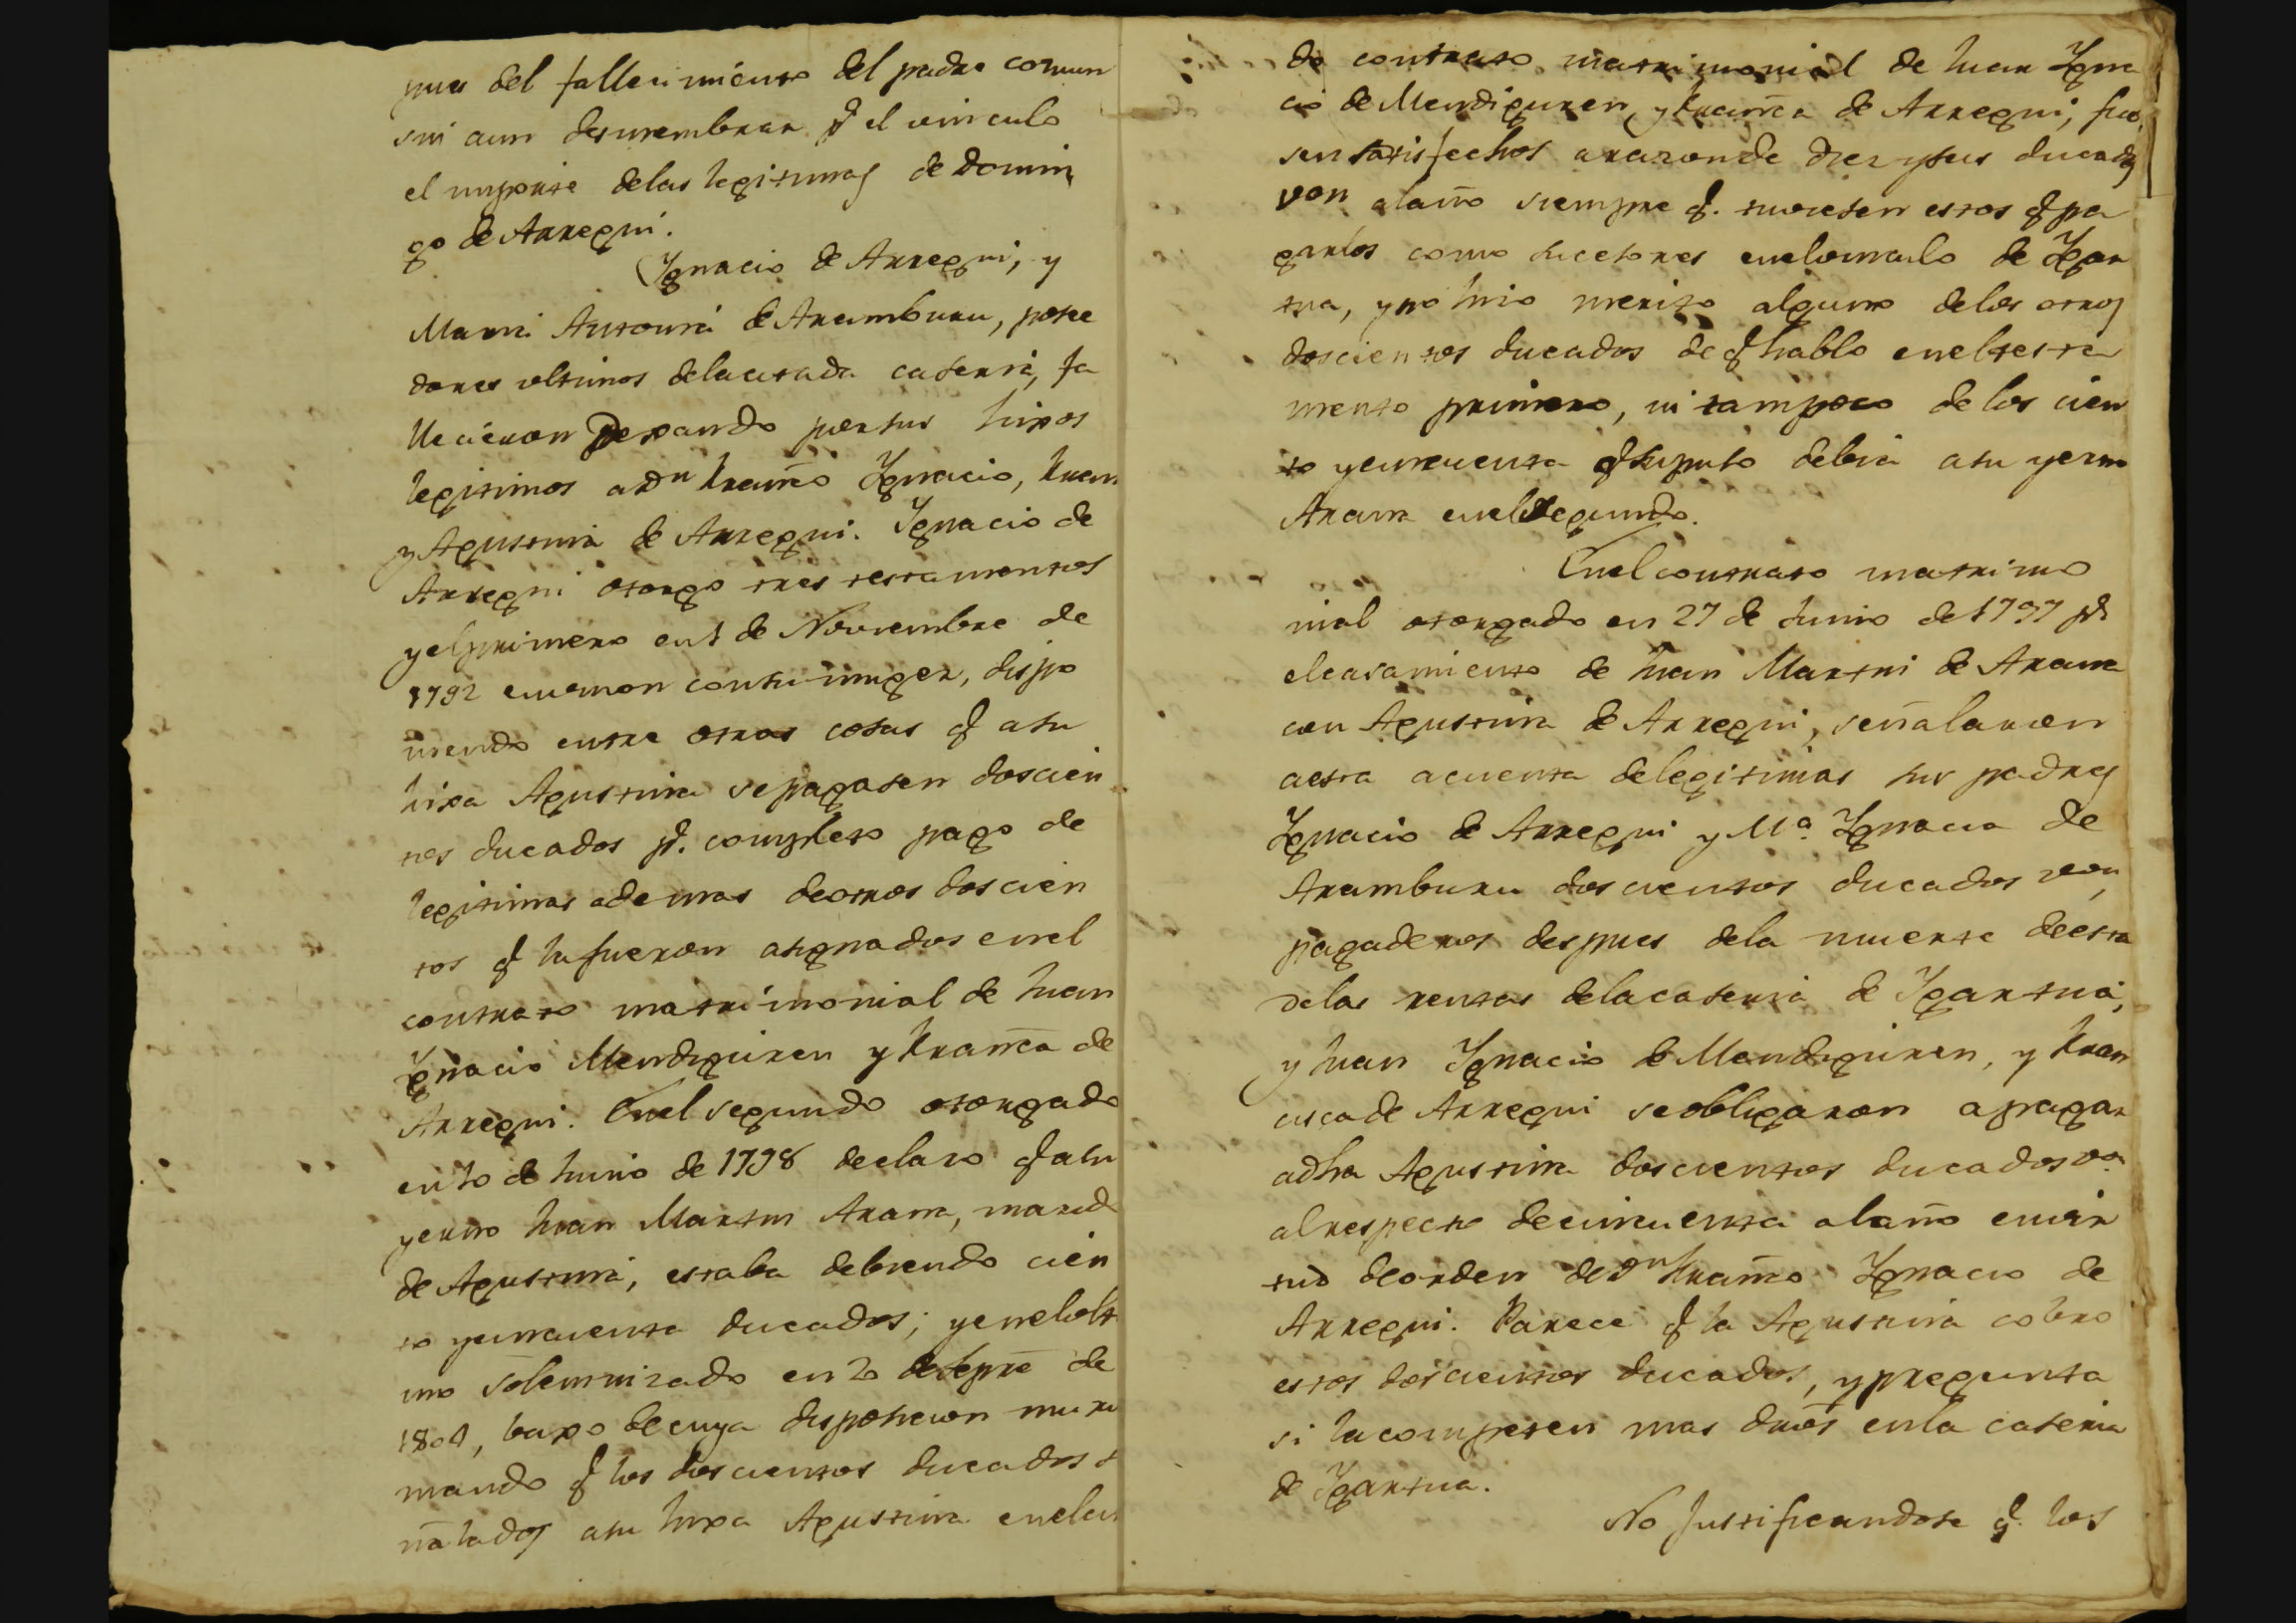 pues del fallecimiento del padre comun
sin aun desmembrar pª el vinculo
el importe delas legitimas de Domin
go de Arregui.
Ignacio de Arregui, y
Maria Antonia de Aramburu, posee
dores ultimos delacitada caseria, fa
llecieron Dexando porsus hixos
legitimos a Dn Franco Ignacio, Juan
y Agustina de Arregui. Ignacio de
Arregui otorgo tres testamentos
yelprimero en 1 de Noviembre de
1792 en union consu muger, dispo
niendo entre otras cosas q asu
hixa Agustina sepagasen doscien
tos ducados pª. completo pago de
legitimas ademas deotros doscien
tos q la fueron asignados enel
contrato matrimonial de Juan
Ignacio Mendiguren y Franca de
Arregui. Enel segundo otorgado
en 10 de Junio de 1798 declaro q asu
yerno Juan Martin Arana, marido
de Agustina, estaba debiendo cien
to ycincuenta ducados; yenelulti
mo solemnizado en 20 deSepre de
1804, baxo decuya disposicion murio
mando q los doscientos ducados se
ñalados asu hixa Agustina enelci
do contrato matrimonial de Juan Igna
cio de Mendiguren, y Franca de Arregui, fue
sen satisfechos arazonde diez yseis ducados
von alaño siempre q. tuviesen estos q pa
garlos como sucesores enelvinculo de Igar
tua, y no hizo merito alguno delos otros
doscientos ducados de q hablo eneltesta
mento primero, ni tampoco de los cien
to ycincuenta q supuso debia asu yerno
Arana enelSegundo.
Enelcontrato matrimo
nial otorgado en 27 de Junio de 1797 pª
elcasamiento de Juan Martin de Arana
con Agustina de Arregui, señalaron
aesta acuenta delegitimas sus padres
Ignacio de Arregui y Mª. Ignacia de
Aramburu doscientos ducados von,
pagaderos despues dela muerte deesta
delas rentas delacaseria de Igartua,
y Juan Ignacio de Mendiguren, y Fran
cisca de Arregui seobligaron apagar
adha Agustina doscientos ducados von
alrespecto decincuenta alaño envir
tud deorden deDn Franco Ignacio de
Arregui. Parece q la Agustina cobro
estos doscientos ducados, y pregunta
si lacompeten mas dros enla caseria
de Igartua.
No Justificandose q. los